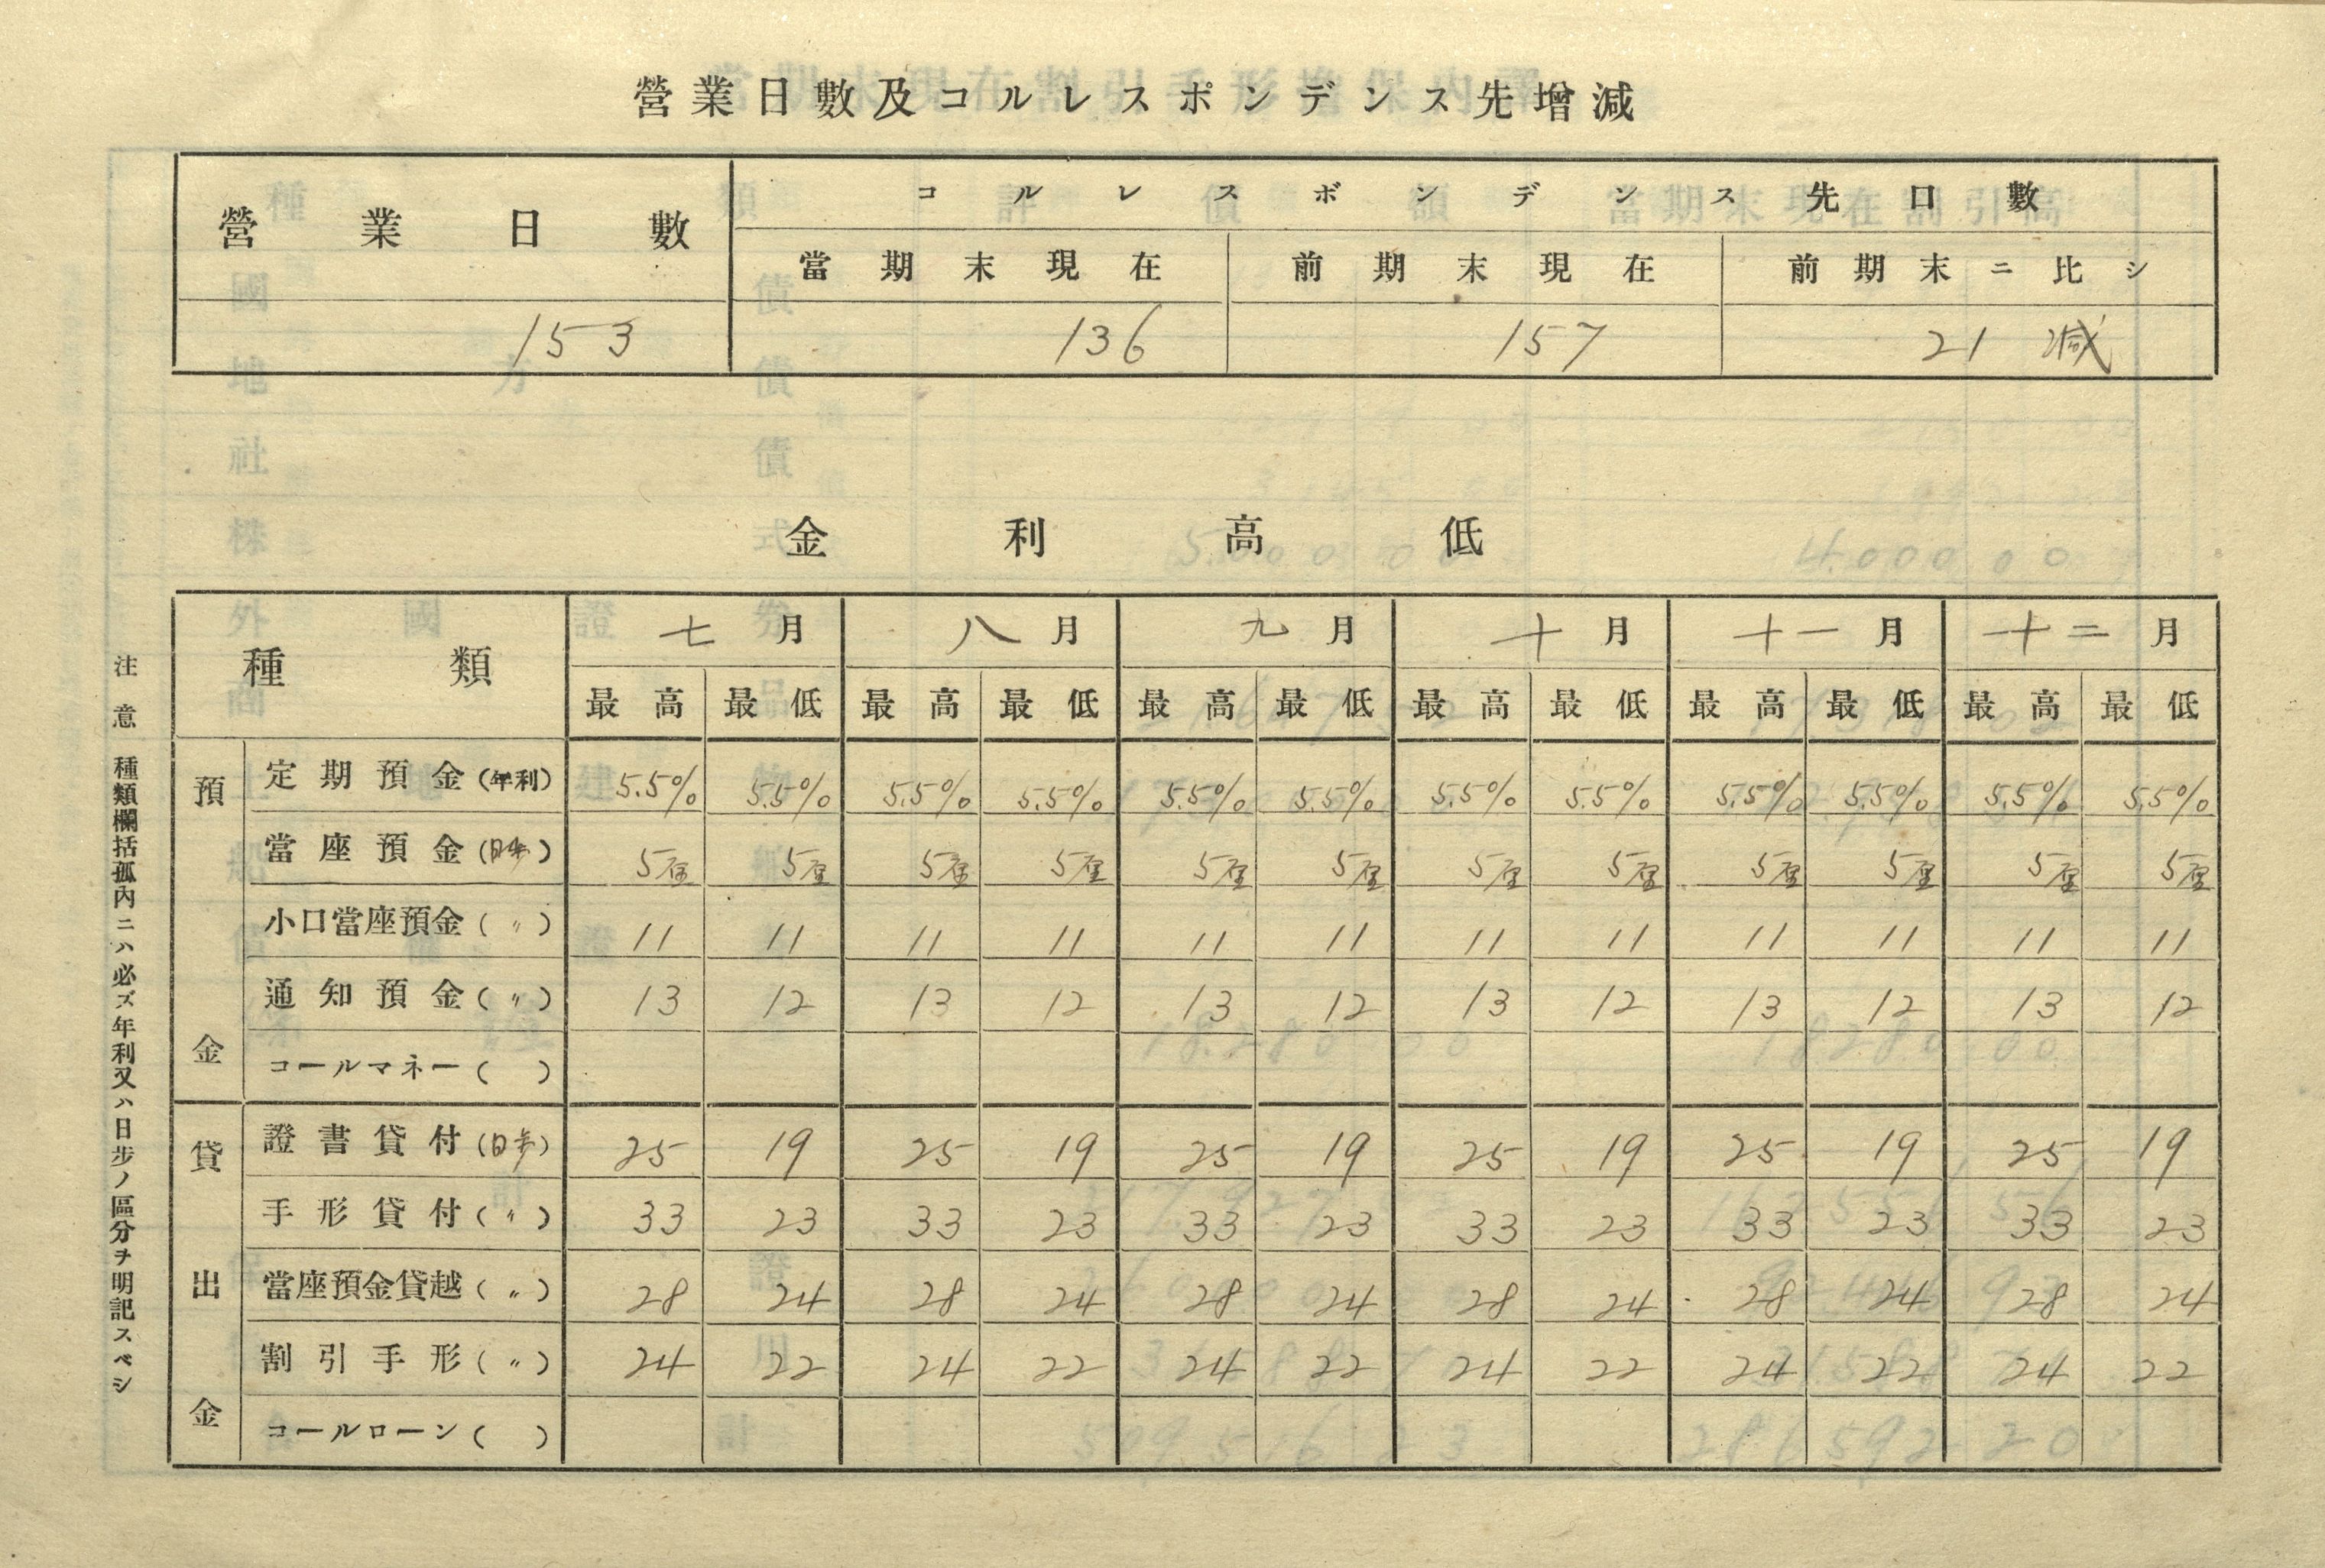 營業日數及コルレスポンデンス先增減
營業日數 コルレスポンデンス先口數
當期末現在 前期末現在 前期末ニ比シ
153 136 157 21 減
金利高低
種類 七月 八月 九月 十月 十一月 十二月
最高 最低 最高 最低 最高 最低 最高 最低 最高 最低 最高 最低
預金
定期預金(年利) 5.5% 5.5% 5.5% 5.5% 5.5% 5.5% 5.5% 5.5% 5.5% 5.5% 5.5% 5.5%
當座預金(日歩) 5厘 5厘 5厘 5厘 5厘 5厘 5厘 5厘 5厘 5厘 5厘 5厘
小口當座預金(〃) 11 11 11 11 11 11 11 11 11 11 11 11
通知預金(〃) 13 12 13 12 13 12 13 12 13 12 13 12
コールマネー( )
貸出金
證書貸付(日歩) 25 19 25 19 25 19 25 19 25 19 25 19
手形貸付(〃) 33 23 33 23 33 23 33 23 33 23 33 23
當座預金貸越(〃) 28 24 28 24 28 24 28 24 28 24 28 24
割引手形(〃) 24 22 24 22 24 22 24 22 24 22 24 22
コールローン( )
注意 種類欄括孤內ニハ必ズ年利又ハ日步ノ區分ヲ明記スベシ